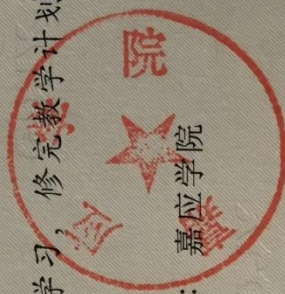 学习，修完教学计划
嘉应学院
嘉应学院